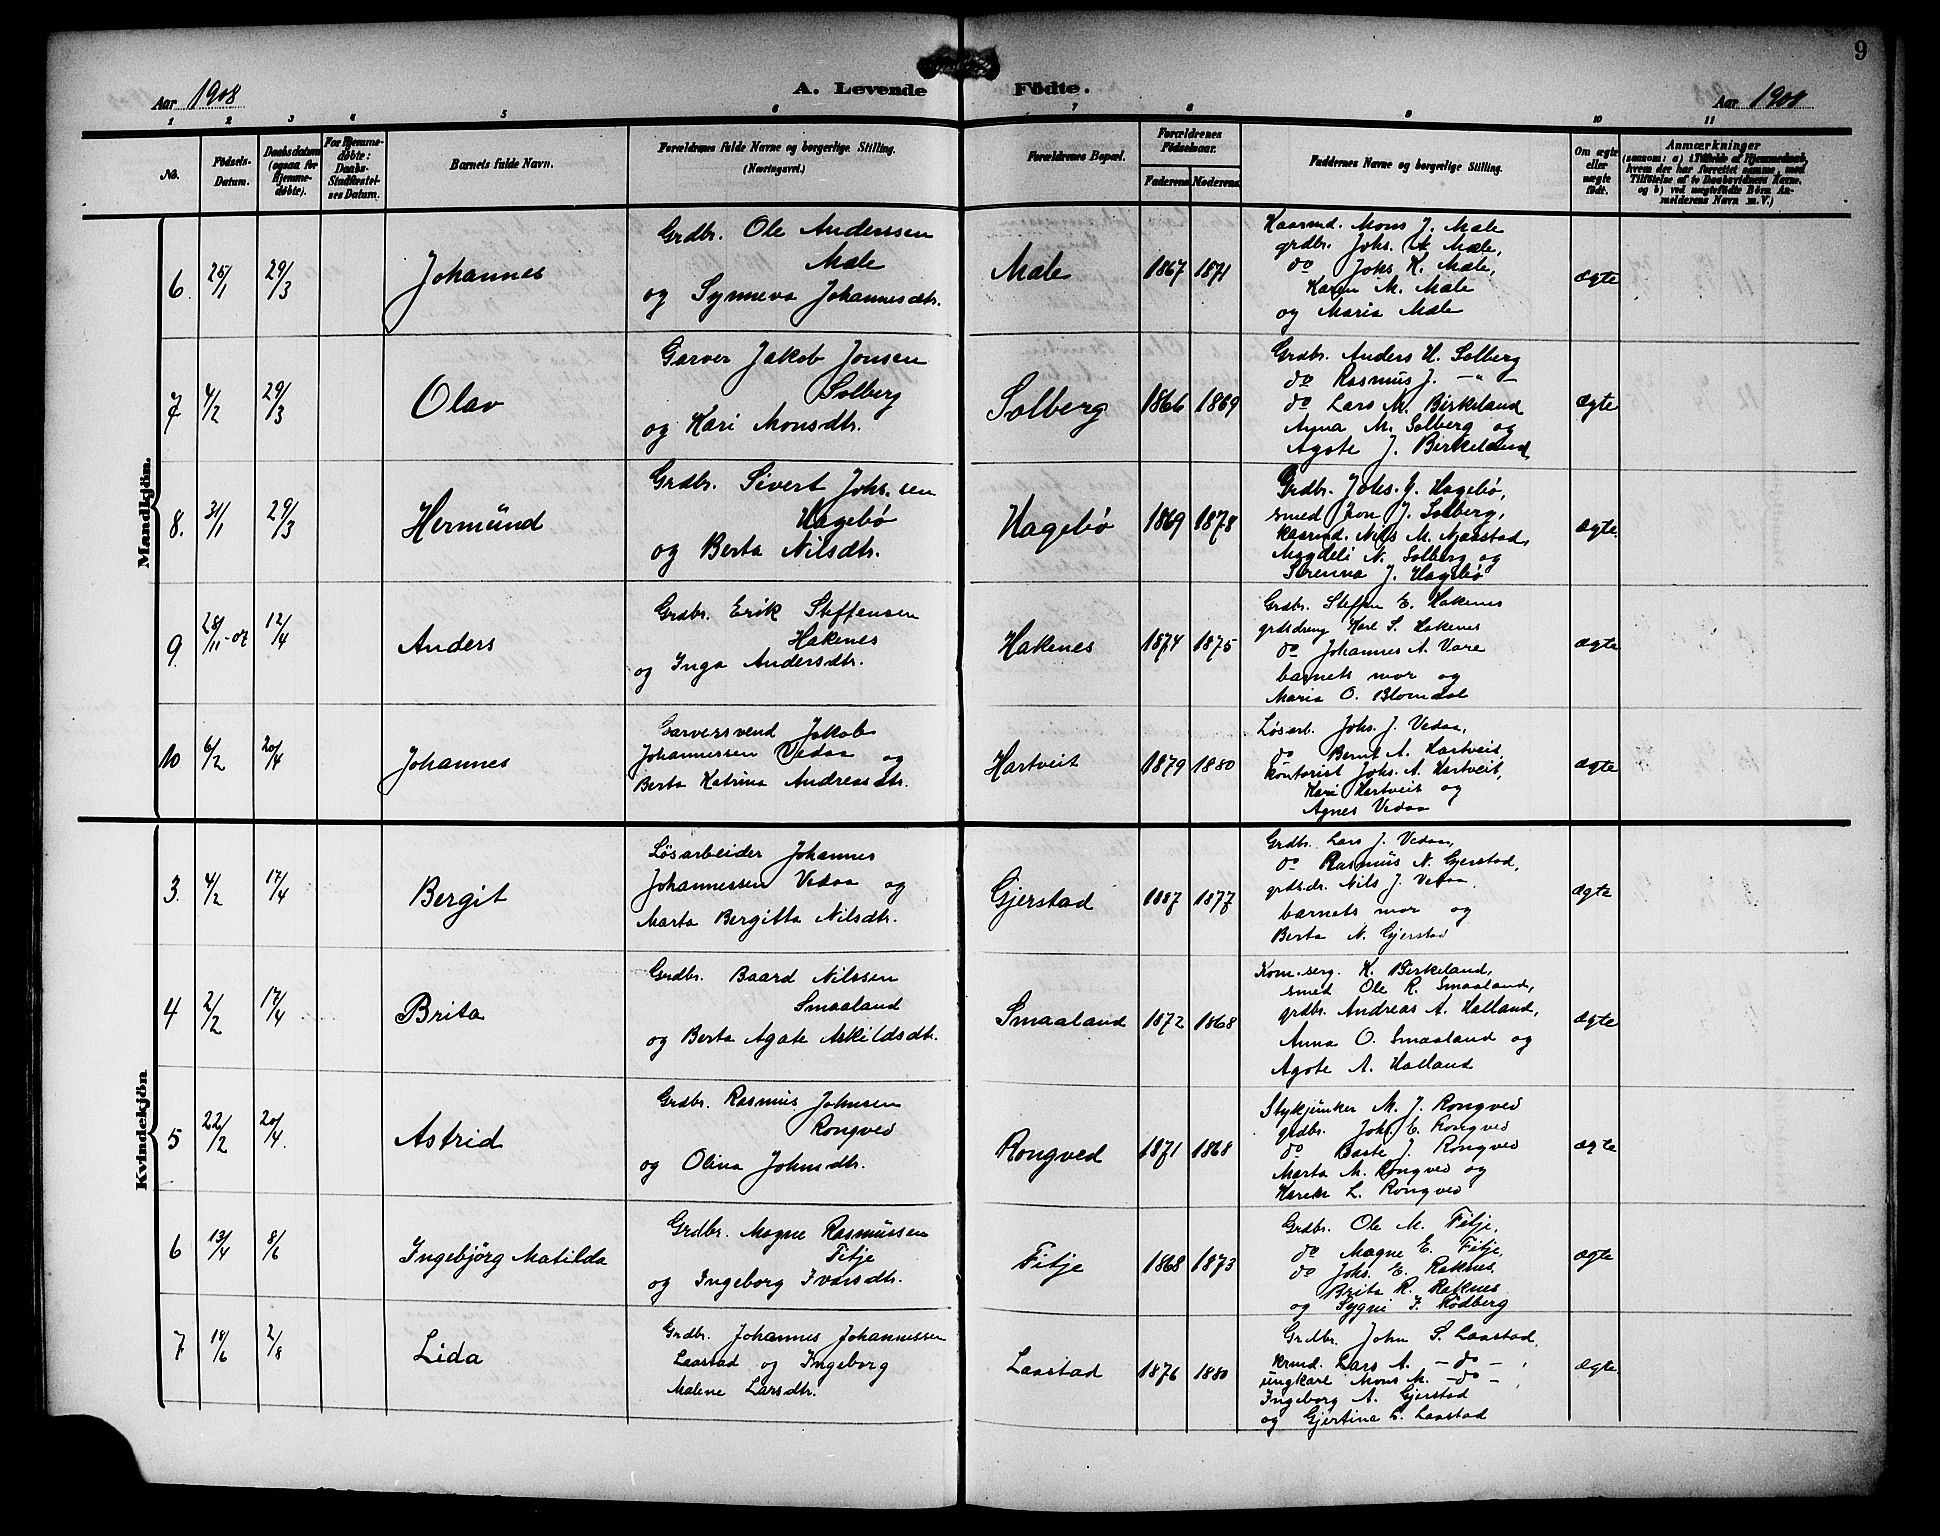 9
Aar 1908
A. Levende Födte.
Aar 1908
1 2 3 4 5 6 7 8 9 10 11
No.
Födsels-Datum.
Daabsdatum (ogsaa for Hjemmedöbte).
For Hjemmedöbte: Daabs-Stadfæstelsens Datum.
Barnets fulde Navn.
Forældrenes fulde Navne og borgerlige Stilling.
(Næringsvei.)
Forældrenes Bopæl.
Forældrenes Födselsaar.
Faderens Moderens
Faddernes Navne og borgerlige Stilling.
Om ægte eller uægte födt.
Anmærkninger
(saasom: a) i Tilfælde af Hjemmedaab, hvem der har forrettet samme, med Tilföielse af to Daabsvidners Navne, og b) ved uægtefödte Börn Anmelderens Navn m. V.)
Mandkjön.
6. 25/1 29/3 Johannes
Grdbr. Ole Anderssen
Mæle
og Synneva Johannesdtr.
Mæle 1867 1871
Kaarmd. Mons J. Mæle
grdbr. Johs. A. Mæle,
do Johs K. Mæle,
Karen M. Mæle
og Maria Mæle
ægte
7 4/2 29/3 Olav
Garver Jakob Jonsen
Solberg
og Kari Monsdtr.
Solberg 1866 1869
Grdbr. Anders H. Solberg
do Rasmus J. — " —
do Lars M. Birkeland
Anna M. Solberg og
Agote J. Birkeland
ægte
8. 31/1 29/3 Hermund
Grdbr. Sivert Johs.sen
Hagebø
og Berta Nilsdtr.
Hagebø 1869 1878
Grdbr. Johs. J. Hagebø,
smed Jon J. Solberg,
kaarmd. Nils M. Njaastad,
Magdeli N. Solberg og
Serenna J. Hagebø
ægte.
9. 28/11-07 12/4 Anders
Grdbr. Erik Steffensen
Hakenes
og Inga Andersdtr.
Hakenes 1874 1875
Grdbr. Steffen E. Hakenes
grdsdreng Karl S. Hakenes
do Johannes A. Vare
barnets mor og
Maria O. Blomdal
ægte
10 6/2 20/4 Johannes
Garversvend Jakob
Johannessen Vedaa og
Berta Katrina Andreasdtr.
Hartveit 1879 1880
Løsarb. Johs. J. Vedaa,
do Bernt A. Hartveit,
kontorist Johs. A. Hartveit,
Kari Hartveit og
Agnes Vedaa
ægte
Kvindekjön
3. 4/2 17/4 Bergit
Løsarbeider Johannes
Johannessen Vedaa og
Marta Bergitta Nilsdtr.
Gjerstad 1887 1877
Grdbr. Lars J. Vedaa,
do Rasmus N. Gjerstad,
grdsdr. Nils J. Vedaa,
barnets mor og
Berta N. Gjerstad
ægte
4 2/2 17/4 Brita
Grdbr. Baard Nilssen
Smaaland
og Berta Agate Askildsdtr.
Smaaland 1872 1868
Kom.serg. K. Birkeland,
smed Ole R. Smaaland,
grdbr. Andreas A. Halland,
Anna O. Smaaland og
Agote A. Halland
ægte
5 22/2 20/4. Astrid
Grdbr. Rasmus Johnsen
Rongved
og Olina Johnsdtr.
Rongved 1871 1868
Stykjunker M. J. Rongved
grdbr. Johs. E. Rongved
do Baste J. Rongved
Marta M. Rongved og
Karen L. Rongved
ægte
6 13/4 8/6 Ingebjörg Matilda
Grdbr. Magne Rasmussen
Fitje
og Ingeborg Ivarsdtr.
Fitje 1868 1873
Grdbr. Ole M. Fitje,
do Magne E. Fitje,
do Johs. E. Raknes,
Brita R. Raknes
og Sygni I. Rödberg
ægte
7 18/6 2/8 Lida
Grdbr. Johannes Johannessen
Laastad og Ingeborg
Malene Larsdtr.
Laastad 1876 1880
Grdbr. John S. Laastad,
krmd. Lars A. — do — ,
ungkarl Mons M. — do — ,
Ingeborg A. Gjerstad
og Gjertina L. Laastad
ægte